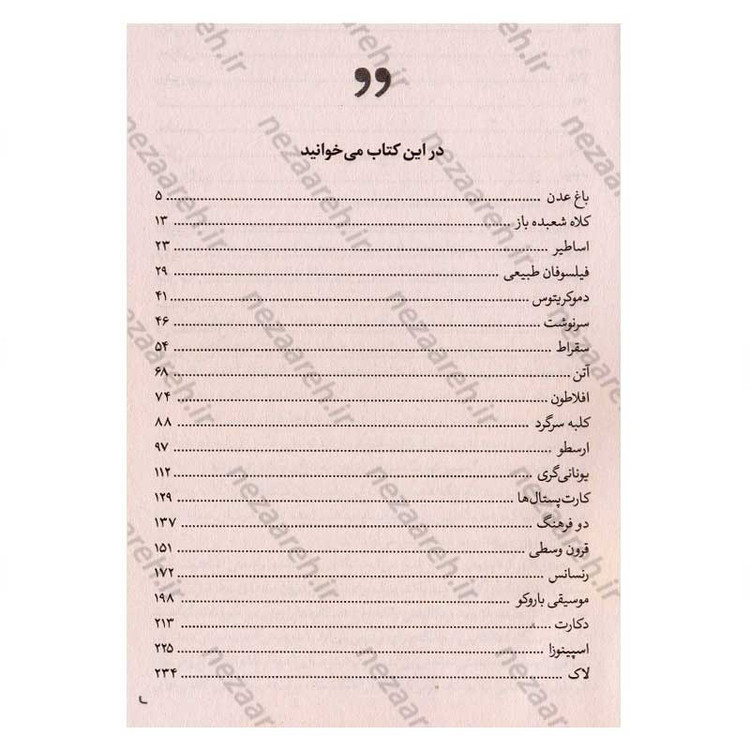 در این کتاب می‌خوانید
باغ عدن ........ ۵
کلاه شعبده باز ........ ۱۳
اساطیر ........ ۲۳
فیلسوفان طبیعی ........ ۲۹
دموکریتوس ........ ۴۱
سرنوشت ........ ۴۶
سقراط ........ ۵۴
آتن ........ ۶۸
افلاطون ........ ۷۴
کلبه سرگرد ........ ۸۸
ارسطو ........ ۹۷
یونانی‌گری ........ ۱۱۲
کارت‌پستال‌ها ........ ۱۲۹
دو فرهنگ ........ ۱۳۷
قرون وسطی ........ ۱۵۱
رنسانس ........ ۱۷۲
موسیقی باروکو ........ ۱۹۸
دکارت ........ ۲۱۳
اسپینوزا ........ ۲۲۵
لاک ........ ۲۳۴
nezaareh.ir